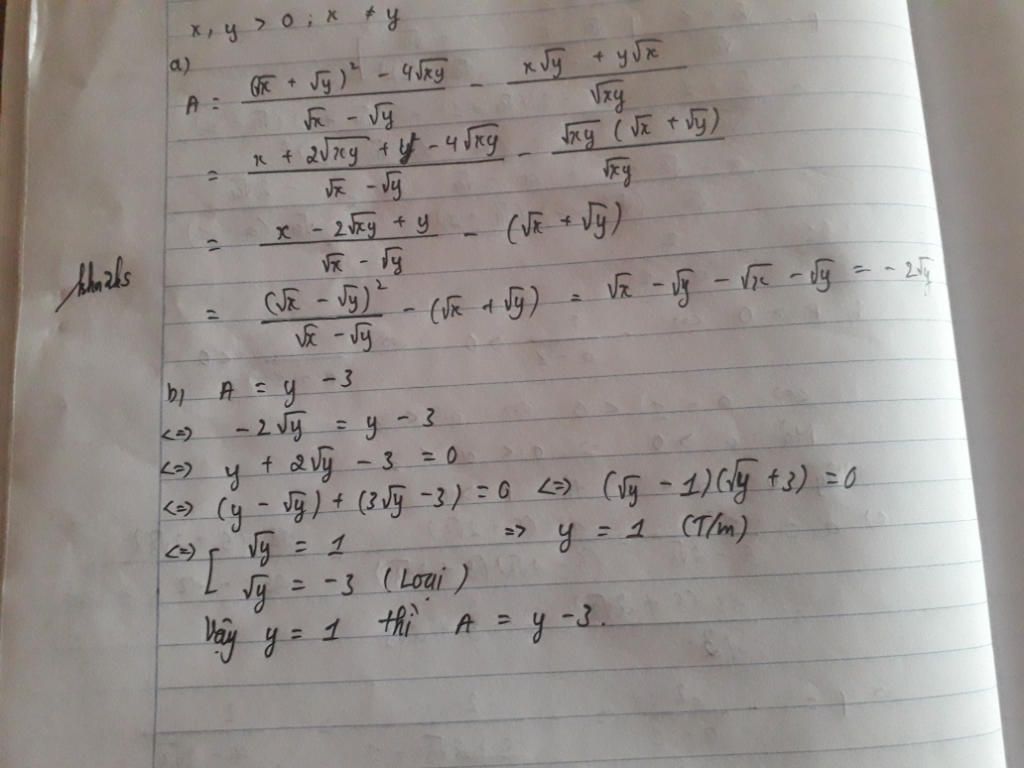 x, y > 0 ; x ≠ y
a)
A = ((√x + √y)² - 4√xy)/(√x - √y) - (x√y + y√x)/√xy
= (x + 2√xy + y - 4√xy)/(√x - √y) - (√xy (√x + √y))/√xy
= (x - 2√xy + y)/(√x - √y) - (√x + √y)
= (√x - √y)²/(√x - √y) - (√x + √y) = √x - √y - √x - √y = - 2√y
b) A = y - 3
<=> -2√y = y - 3
<=> y + 2√y - 3 = 0
<=> (y - √y) + (3√y - 3) = 0 <=> (√y - 1)(√y + 3) = 0
<=> [ √y = 1 => y = 1 (T/m)
√y = -3 (Loại)
Vậy y = 1 thì A = y - 3.